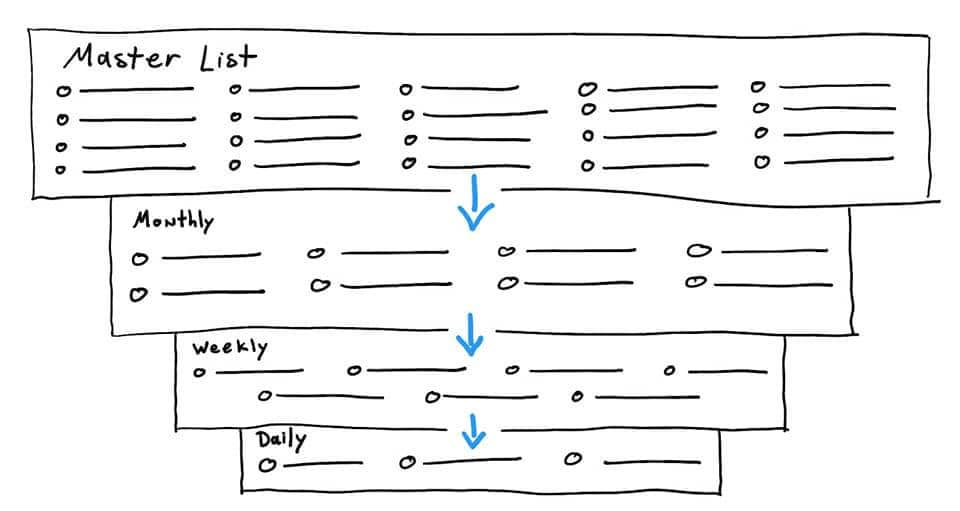 Master List
Monthly
Weekly
Daily